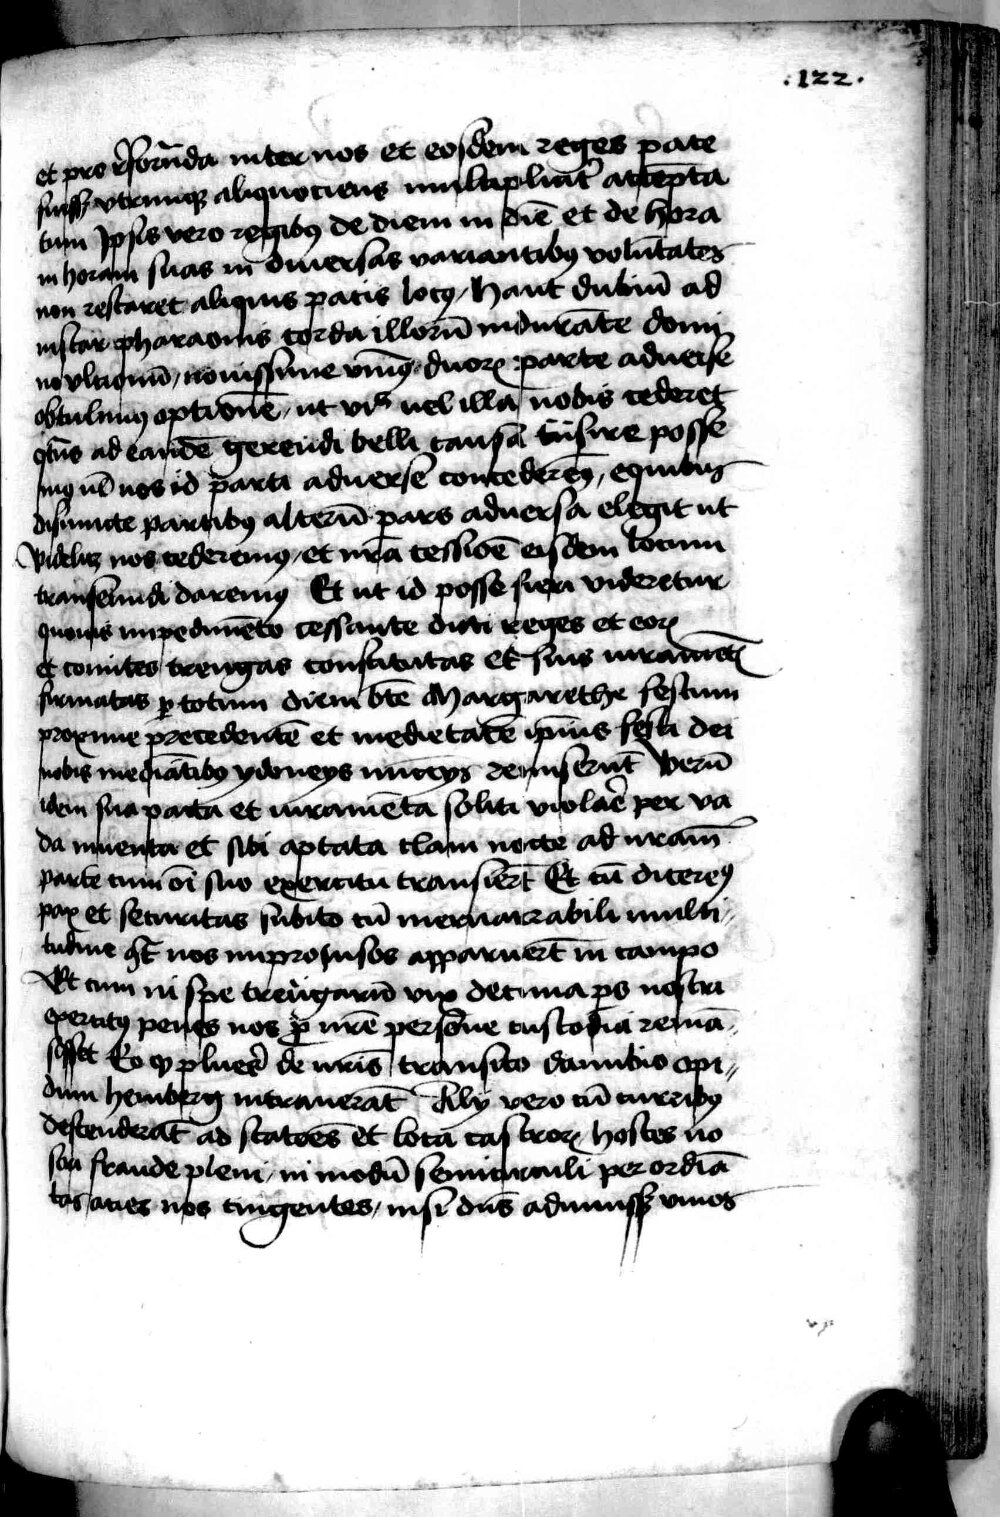 .122.
et pro reformanda inter nos et eosdem reges pace
fuisset utrumque aliquociens multipliciter attempta
tum Ipsis vero regibus de diem in diē et de hora
in horam suas in diuersas variantibus volūtates
non restaret aliquis pacis locus / haut dubiū ad
instar pharaonis corda illorū indurāte domi
no ultionū / nouissime unius duorum parte aduerse
obtulimus optionē / ut vel illa nobis cederet
ad eandē gerendi belli causā trāsire posse
mus uel nos id parti aduerse concederemus / equibus
disiuncte partibus alterū pars aduersa elegit ut
videlicet nos cederemus / et nrā cessiōe eisdem locum
transeundi daremus Et ut id posse fieri videretur
quouis impedimēto cessante dicti reges et eorum
et comites treugas constitutas et suis iuramētis
firmatas per totum diem btē Margarethe festum
proxime precedentē et medietatē ipius festi dei
nobis mediātibus ydoneys nuncys remiserūt Verū
idem sua pacta et iuramēta soliti violare per va
da inuenta et sibi aptata clam nocte ad nram
parte cum oī suo exercitu transierūt Et cū diceremus
pax et securitas subito cū inenarrabili multi
tudine contra nos improuisos apparuerūt in campo
Et cum in spe treugarū vix decima pars nostri
exercitus penes nos pro nrē persone custodia remā
sisset Eo quod plures de nris transito danubio opi
dum heinberg intrauerāt Aly vero cū curribus
descenderāt ad stacoēs et loca castrorum hostes no
stri fraude pleni / in modū semicirculi per ordīa
tas acies nos cingentes / nisi dns adiuuisset